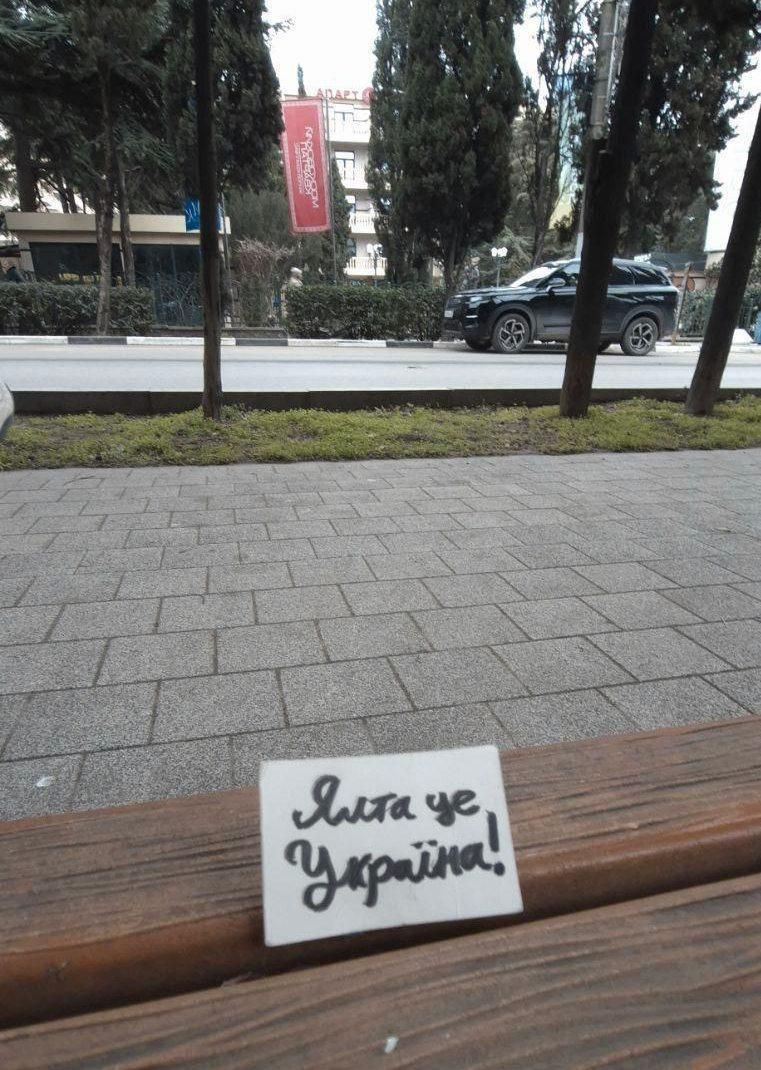 АПАРТ
Ялта це
Україна!